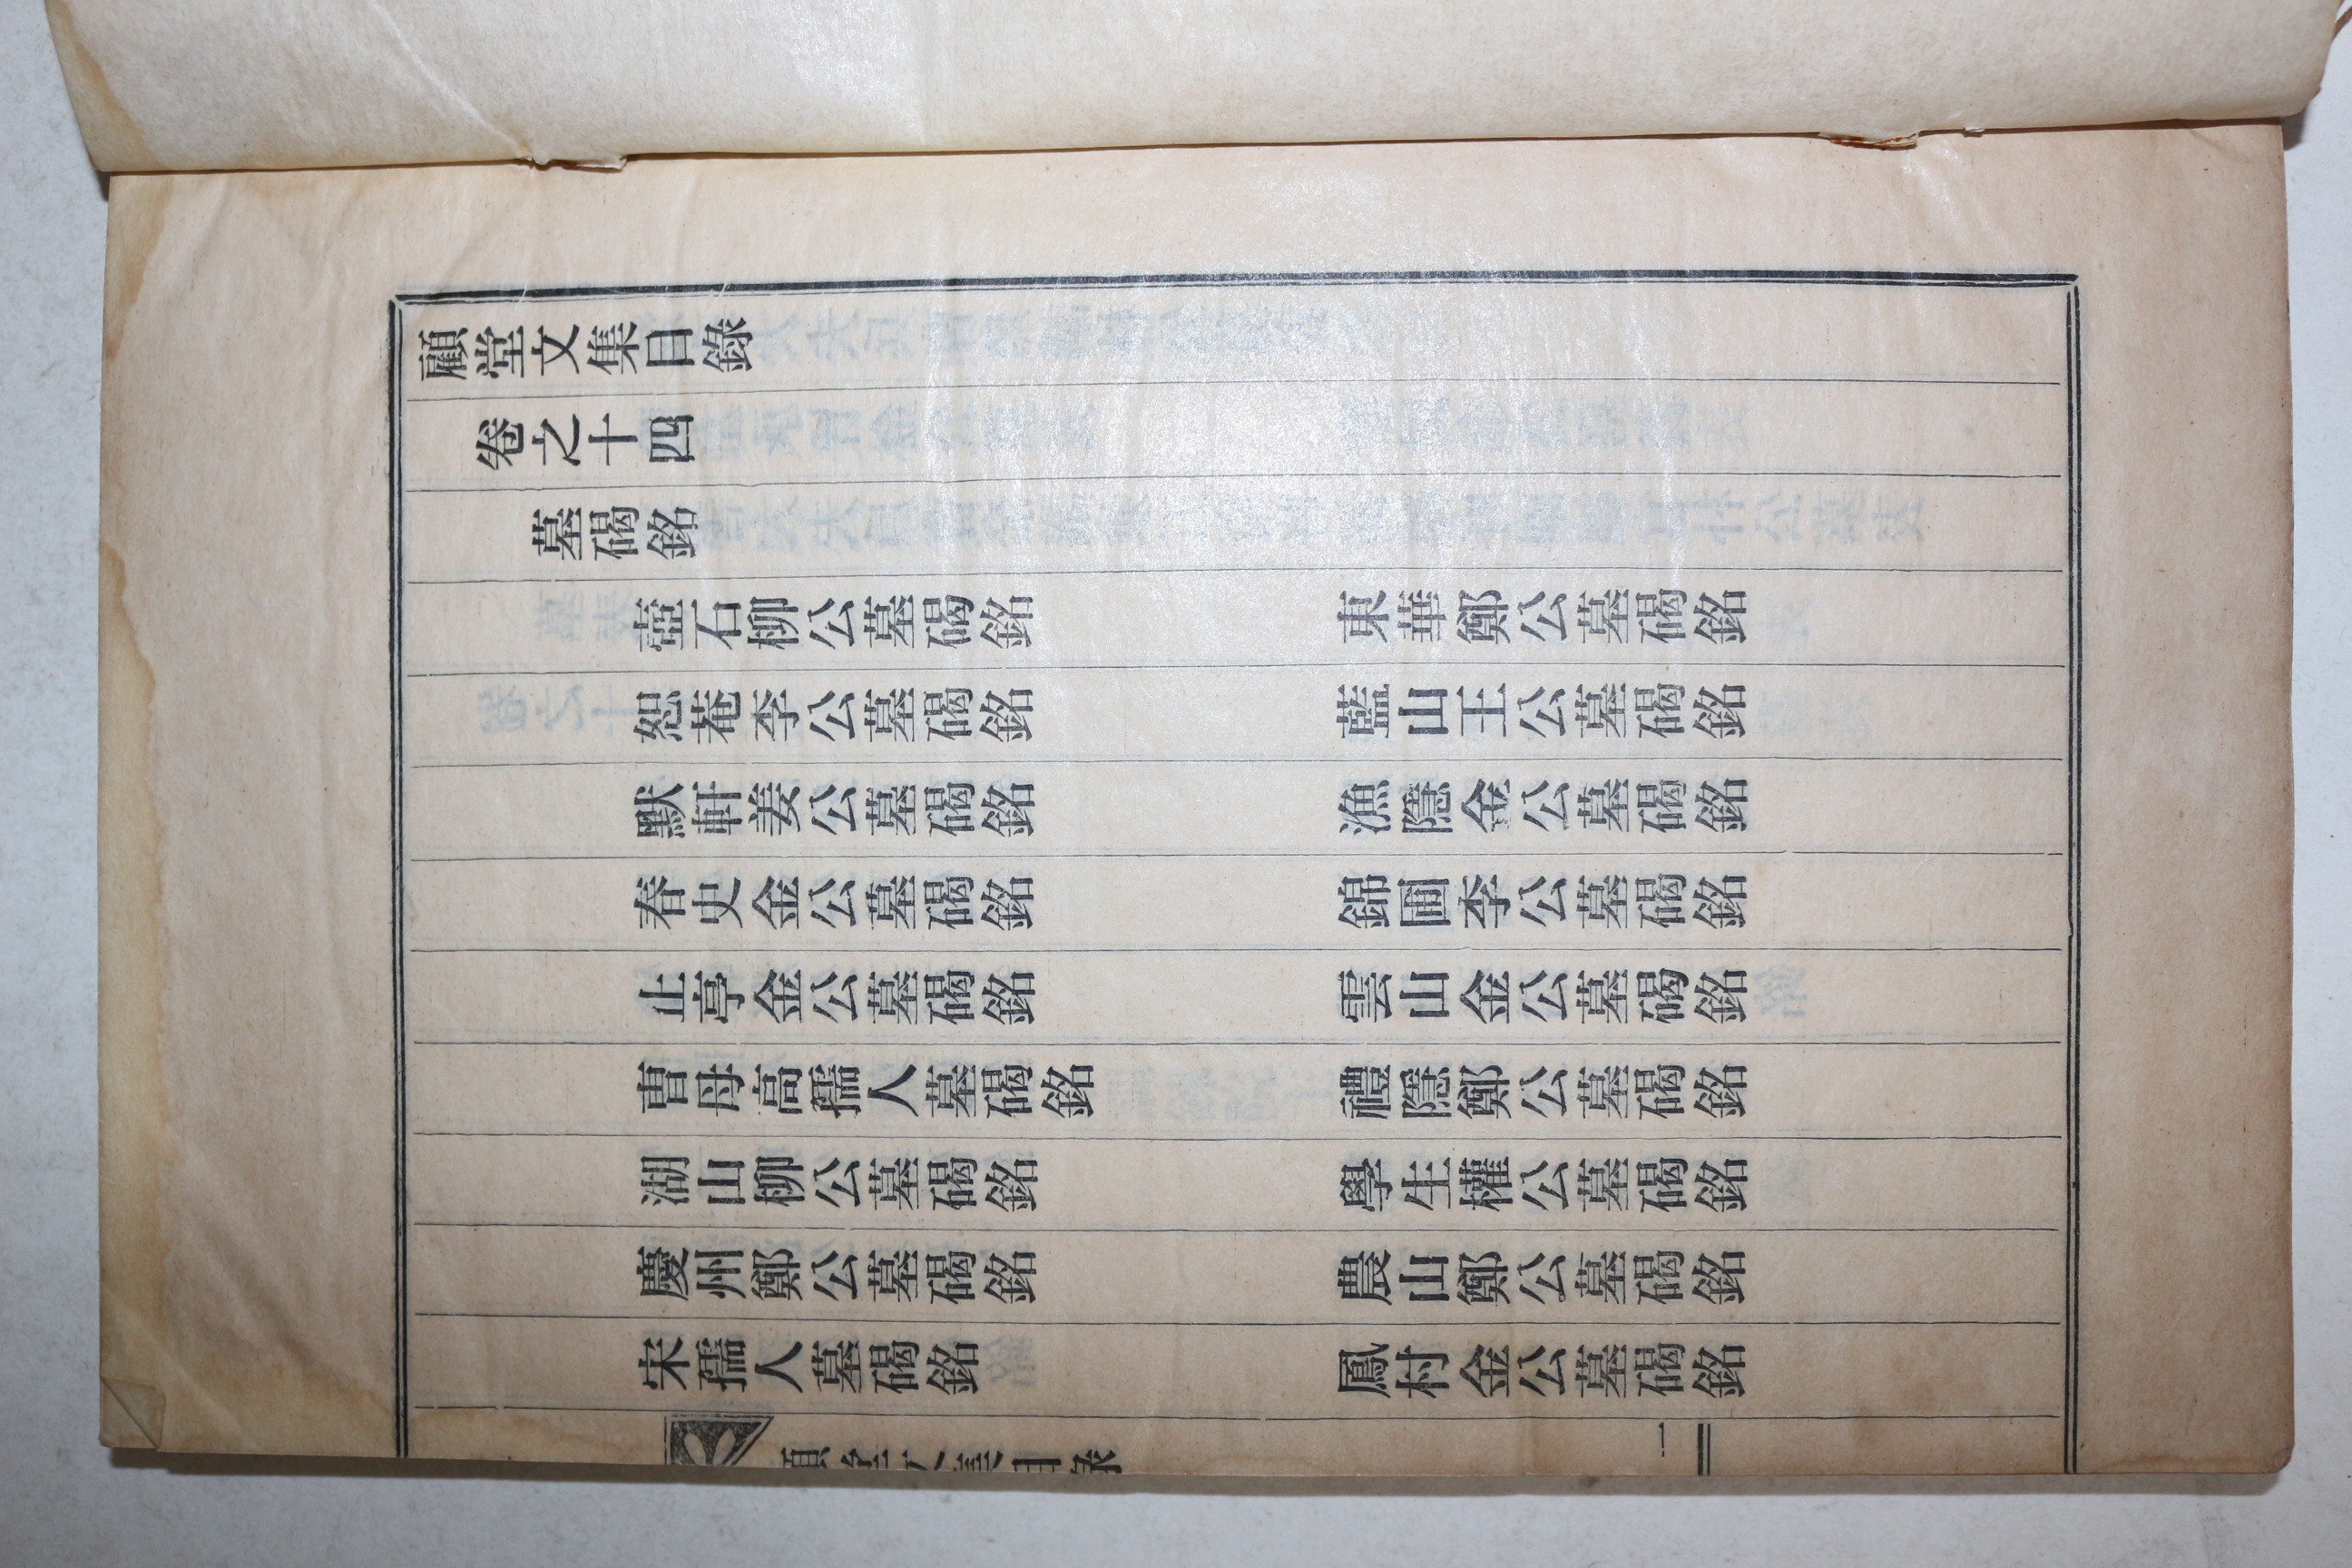 顧堂文集目錄
卷之十四
墓碣銘
壺石柳公墓碣銘 東華鄭公墓碣銘
恕菴李公墓碣銘 藍山王公墓碣銘
默軒姜公墓碣銘 漁隱金公墓碣銘
春史金公墓碣銘 錦圃李公墓碣銘
止亭金公墓碣銘 雲山金公墓碣銘
曺母高孺人墓碣銘 禮隱鄭公墓碣銘
湖山柳公墓碣銘 學生權公墓碣銘
慶州鄭公墓碣銘 農山鄭公墓碣銘
宋孺人墓碣銘 鳳村金公墓碣銘
顧堂文集目錄 一